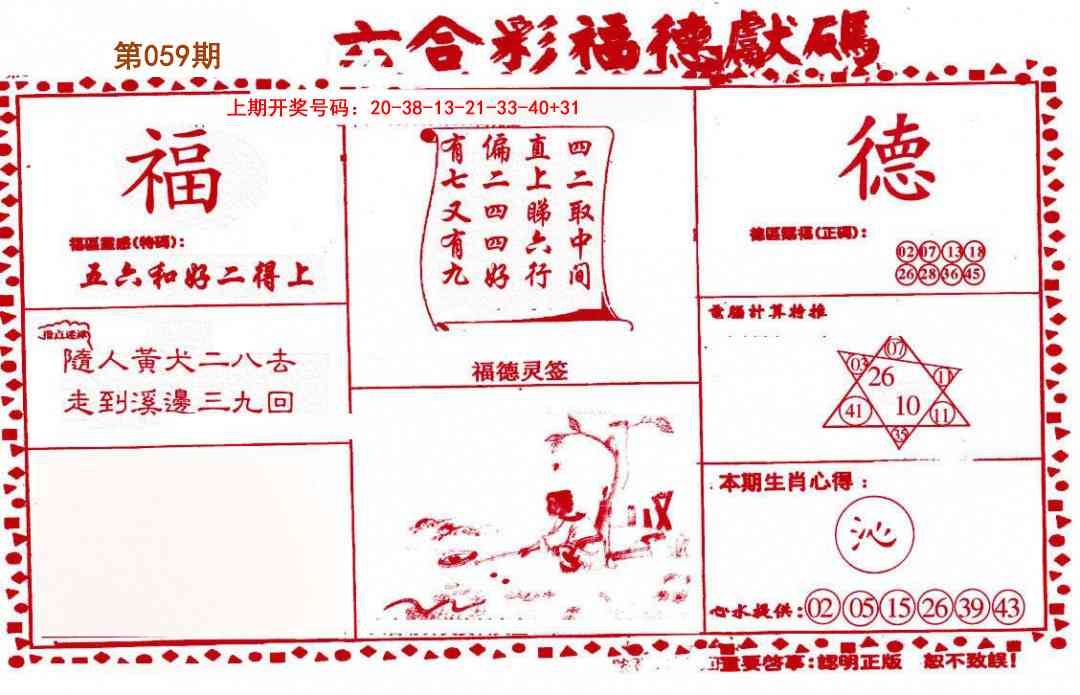 六合彩福德獻碼
第059期
上期开奖号码：20-38-13-21-33-40+31
福
福區靈感(特碼)：
五六和好二得上
隨人黃犬二八去
走到溪邊三九回
四二取中间
直上睇六行
偏二四四好
有七又有九
福德灵签
德
德區賜福(正碼)：
02 07 13 18
26 28 36 45
電腦計算特推
07
03 26 11
41 10 11
35
本期生肖心得：
沁
心水提供：02 05 15 26 39 43
重要啓事：認明正版 恕不致誤！